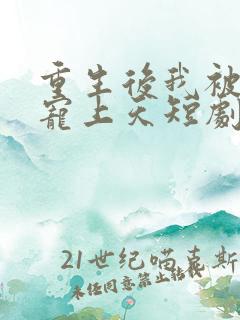 重生後我被
寵上天短劇
21世纪喵喜斯
未经同意禁止转载